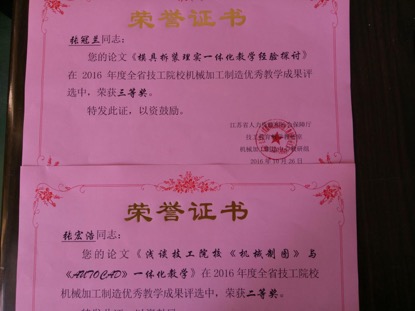 荣誉证书
张冠兰同志:
您的论文《模具拆装理实一体化教学经验探讨》
在 2016 年度全省技工院校机械加工制造优秀教学成果评
选中,荣获三等奖。
特发此证,以资鼓励。
江苏省人力资源和社会保障厅
机械加工制造
教研组
2016 年 10 月 26 日
荣誉证书
张宏浩同志:
您的论文《浅谈技工院校《机械制图》与
《AUTOCAD》一体化教学》在 2016 年度全省技工院校
机械加工制造优秀教学成果评选中,荣获二等奖。